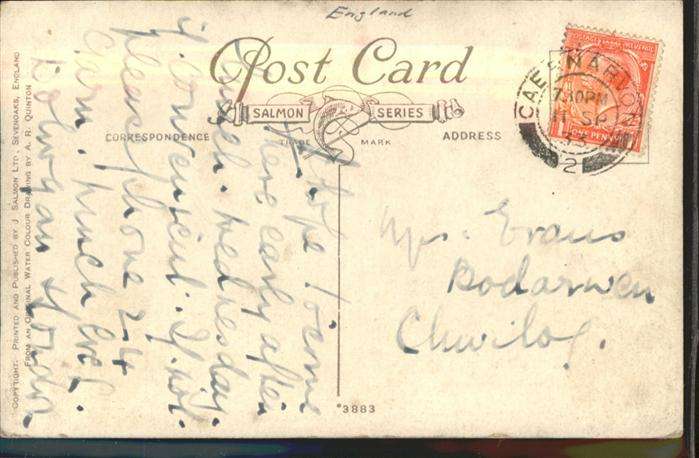 England
Post Card
SALMON SERIES
TRADE MARK
CORRESPONDENCE
ADDRESS
CAERNARVON
7.30PM
11 SP
33
2
ONE PENNY
I hope to come
here early after
lunch wednesday
if convenient. If not.
please phone 24
Carn. much love.
Mrs. Evans
Bodarwen
Chwilog.
*3883
COPYRIGHT. PRINTED AND PUBLISHED BY J SALMON LTD., SEVENOAKS, ENGLAND
FROM AN ORIGINAL WATER COLOUR DRAWING BY A. R. QUINTON